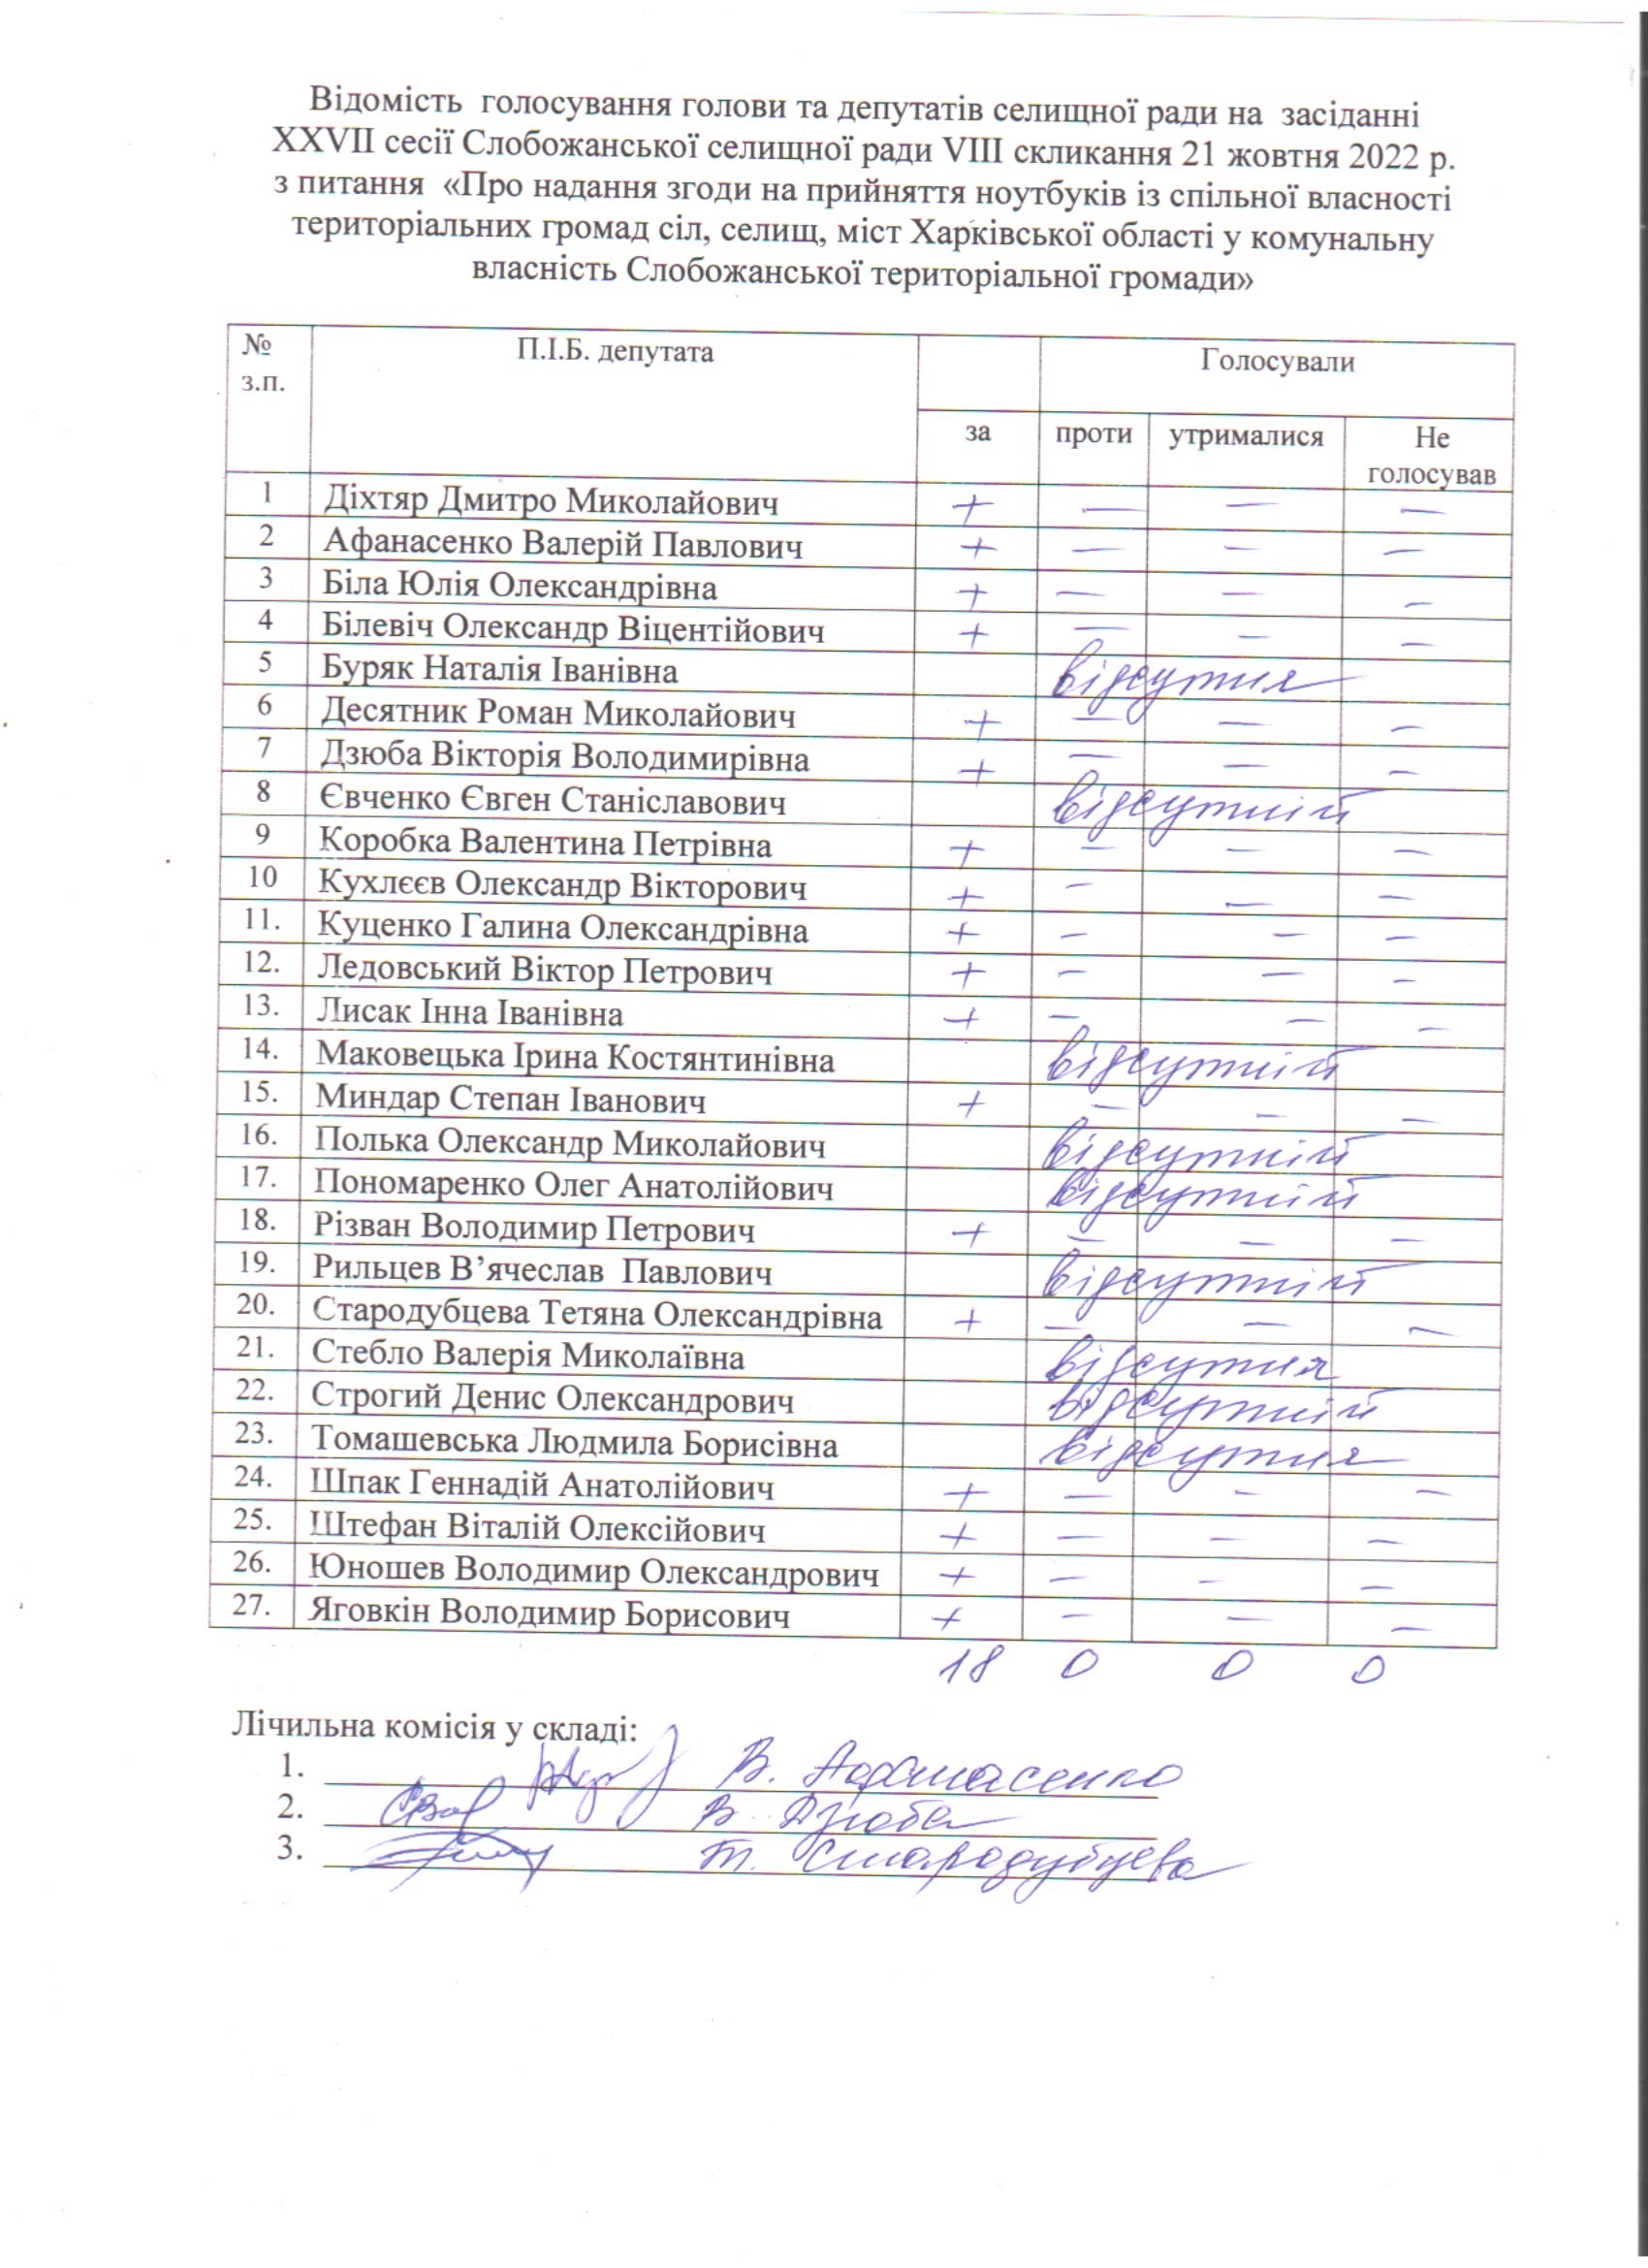 Відомість голосування голови та депутатів селищної ради на засіданні
XXVII сесії Слобожанської селищної ради VIII скликання 21 жовтня 2022 р.
з питання «Про надання згоди на прийняття ноутбуків із спільної власності
територіальних громад сіл, селищ, міст Харківської області у комунальну
власність Слобожанської територіальної громади»
№ з.п. П.І.Б. депутата Голосували
за проти утрималися Не голосував
1 Діхтяр Дмитро Миколайович + — — —
2 Афанасенко Валерій Павлович + — — —
3 Біла Юлія Олександрівна + — — —
4 Білевіч Олександр Віцентійович + — — —
5 Буряк Наталія Іванівна відсутня
6 Десятник Роман Миколайович + — — —
7 Дзюба Вікторія Володимирівна + — — —
8 Євченко Євген Станіславович відсутній
9 Коробка Валентина Петрівна + — — —
10 Кухлєєв Олександр Вікторович + — — —
11. Куценко Галина Олександрівна + — — —
12. Ледовський Віктор Петрович + — — —
13. Лисак Інна Іванівна + — — —
14. Маковецька Ірина Костянтинівна відсутній
15. Миндар Степан Іванович + — — —
16. Полька Олександр Миколайович відсутній
17. Пономаренко Олег Анатолійович відсутній
18. Різван Володимир Петрович + — — —
19. Рильцев В’ячеслав Павлович відсутній
20. Стародубцева Тетяна Олександрівна + — — —
21. Стебло Валерія Миколаївна відсутня
22. Строгий Денис Олександрович відсутній
23. Томашевська Людмила Борисівна відсутня
24. Шпак Геннадій Анатолійович + — — —
25. Штефан Віталій Олексійович + — — —
26. Юношев Володимир Олександрович + — — —
27. Яговкін Володимир Борисович + — — —
18 0 0 0
Лічильна комісія у складі:
1. В. Афанасенко
2. В Дзюба
3. Т. Стародубцева